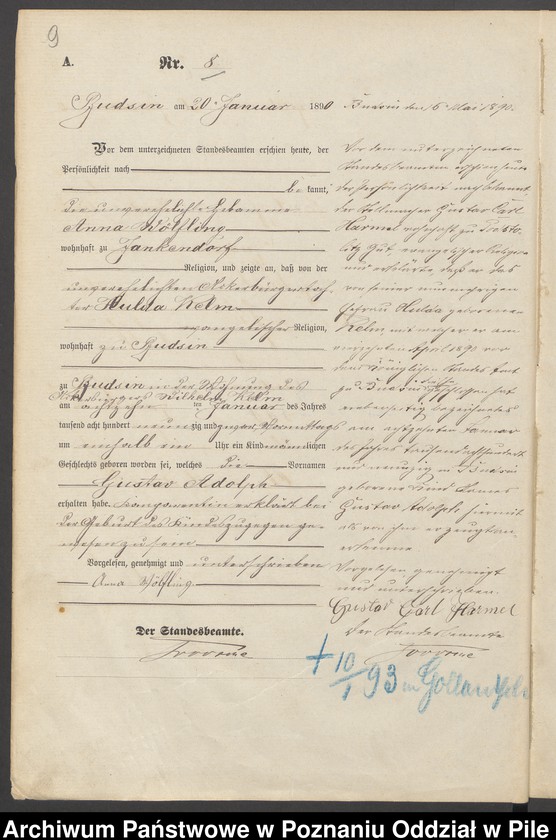 9
A.
Nr. 8
Budsin am 20. Januar 1890
Vor dem unterzeichneten Standesbeamten erschien heute, der
Persönlichkeit nach
bekannt,
die unverehelichte Hebamme
Anna Wölfling
wohnhaft zu Jankendorf
Religion, und zeigte an, daß von der
unverehelichten Ackerbürgertoch-
ter Hulda Kelm
evangelischer Religion,
wohnhaft zu Budsin
zu Budsin in der Wohnung des
Ackerbürgers Wilhelm Kelm
am achtzehn ten Januar des Jahres
tausend acht hundert neunzig und Vormittags
um einhalb ein Uhr ein Kind männlichen
Geschlechts geboren worden sei, welches die Vornamen
Gustav Adolph
erhalten habe. Komparentin erklärt bei
der Geburt des Kindes zugegen ge-
wesen zu sein.
Vorgelesen, genehmigt und unterschrieben
Anna Wölfling.
Der Standesbeamte.
Budsin den 6. Mai 1890.
Vor dem unterzeichneten
Standesbeamten erschien heute
der Persönlichkeit nach bekannt
der Gustav Carl
Harmel wohnhaft zu
Gut evangelischer Religion
und erklärte, daß er das
von seiner nunmehrigen
Ehefrau Hulda geborenen
Kelm mit welcher er am
April 1890 vor
dem Königlichen Standesamt
zu Budsin die Ehe geschlossen hat
bezeichnete
am achtzehnten Januar
des Jahres tausend achthundert
und neunzig in Budsin
geborene Kind Namens
Gustav Adolph hiermit
als von ihm erzeugt an-
erkenne
Vorgelesen genehmigt
und unterschrieben.
Gustav Carl Harmel
Der Standesbeamte
+ 10/1 93 in Gollantsch
Archiwum Państwowe w Poznaniu Oddział w Pile